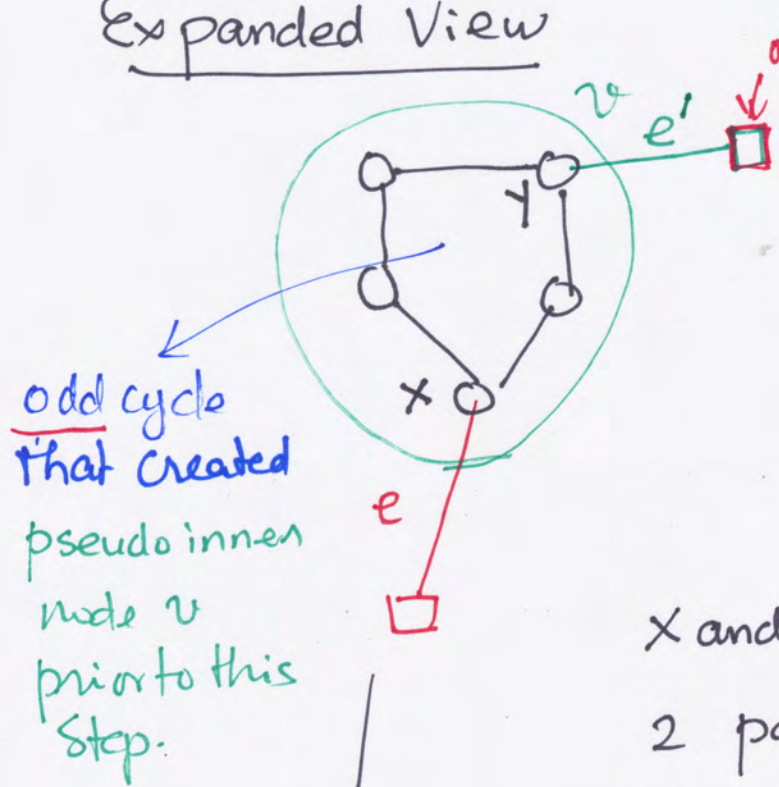 Expanded View
v
e'
y
x
odd cycle
that created
pseudo inner
node v
prior to this
Step.
e
x and
2